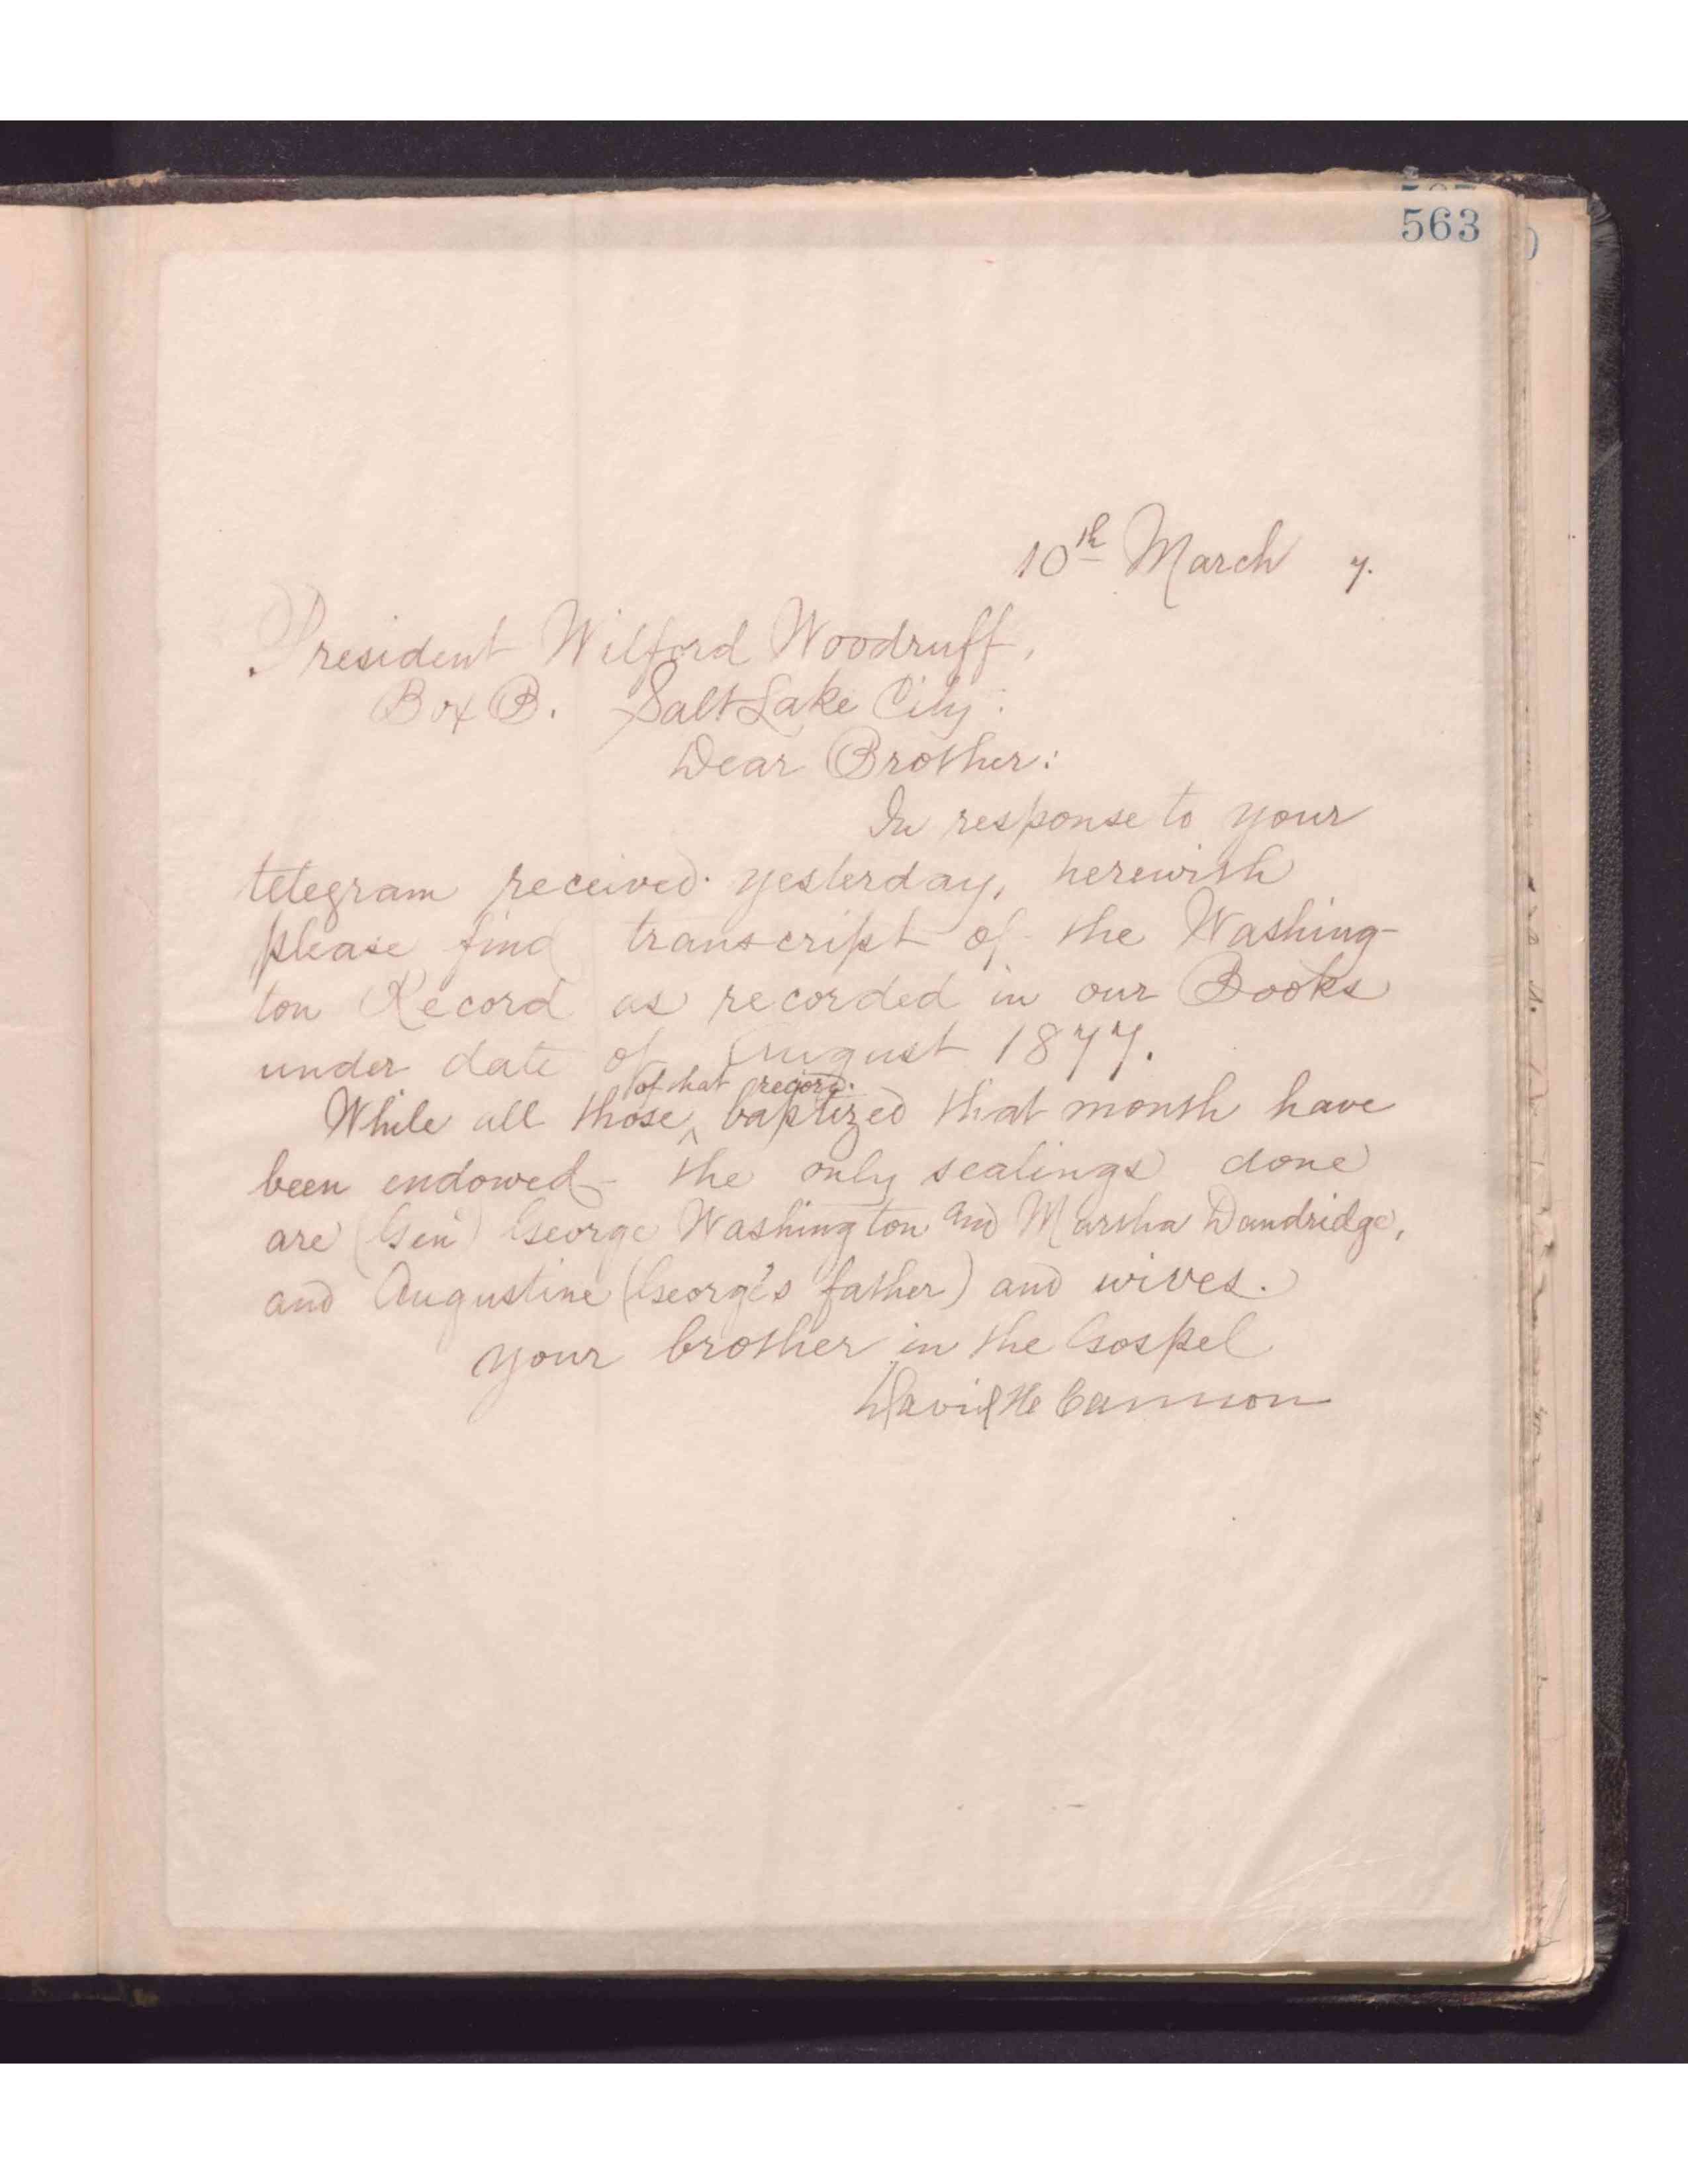 563
10th March 7.
President Wilford Woodruff,
Box B. Salt Lake City:
Dear Brother:
In response to your
telegram received yesterday, herewith
please find transcript of the Washing-
ton Record as recorded in our Books
under date of August 1877.
of that record.
While all those ^ baptized that month have
been endowed - the only sealings done
are (Gen) George Washington and Martha Dandridge,
and Augustine (George's father) and wives.
Your brother in the Gospel
David H Cannon